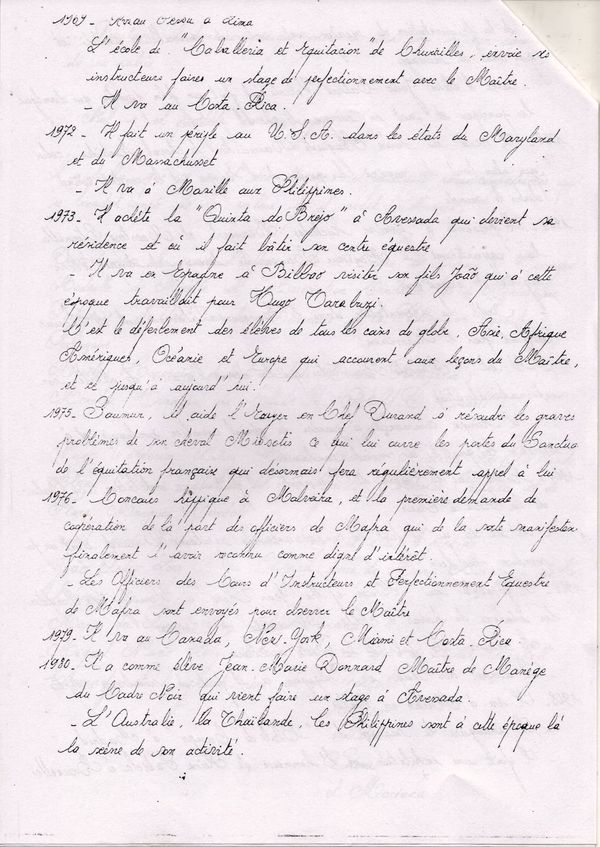 1969 - au Pérou à Lima
L'école de "Caballeria et Equitacion" de envoie
instructeurs faires un stage de perfectionnement avec le Maître.
- Il va au Costa-Rica.
1972 - Il fait un périple au U.S.A. dans les états du Maryland
et du Massachusset
- Il va à Manille aux Philippines.
1973 - Il achéte la "Quinta do Brejo" à Avessada qui devient sa
résidence et où il fait bâtir son centre équestre
- Il va en Epagne à Bilbao visiter son fils João qui à cette
époque travaillait pour Hugo
C'est le déferlement des élèves de tous les coins du globe, Asie, Afrique
Amériques, Océanie et Europe qui accourent aux leçons du Maître,
et ce jusqu'à aujourd'hui.
1975 - Saumur, il aide l'Ecuyer en Chef Durand à résoudre les graves
problèmes de son cheval Miosotis ce qui lui ouvre les portes du Sanctua
de l'équitation française qui désormais fera régulièrement appel à lui
1976 - Concours hippique à Malveira, et la premiere demande de
coopération de la part des officiers de Mafra qui de la sorte manifesten
finalement l'avoir reconnu comme digne d'intérêt.
- Les Officiers des Cours d'Instructeurs et Perfectionnement Equestre
de Mafra sont envoyés pour observer le Maître
1979 - Il va au Canada, New-York, Miami et Costa-Rica.
1980 - Il a comme élève Jean-Marie Donnard Maître de Manège
du Cadre Noir qui vient faire un stage à Avessada.
- L'Australie, la Thaïlande, les Philippines sont à cette époque là
la scène de son activité.